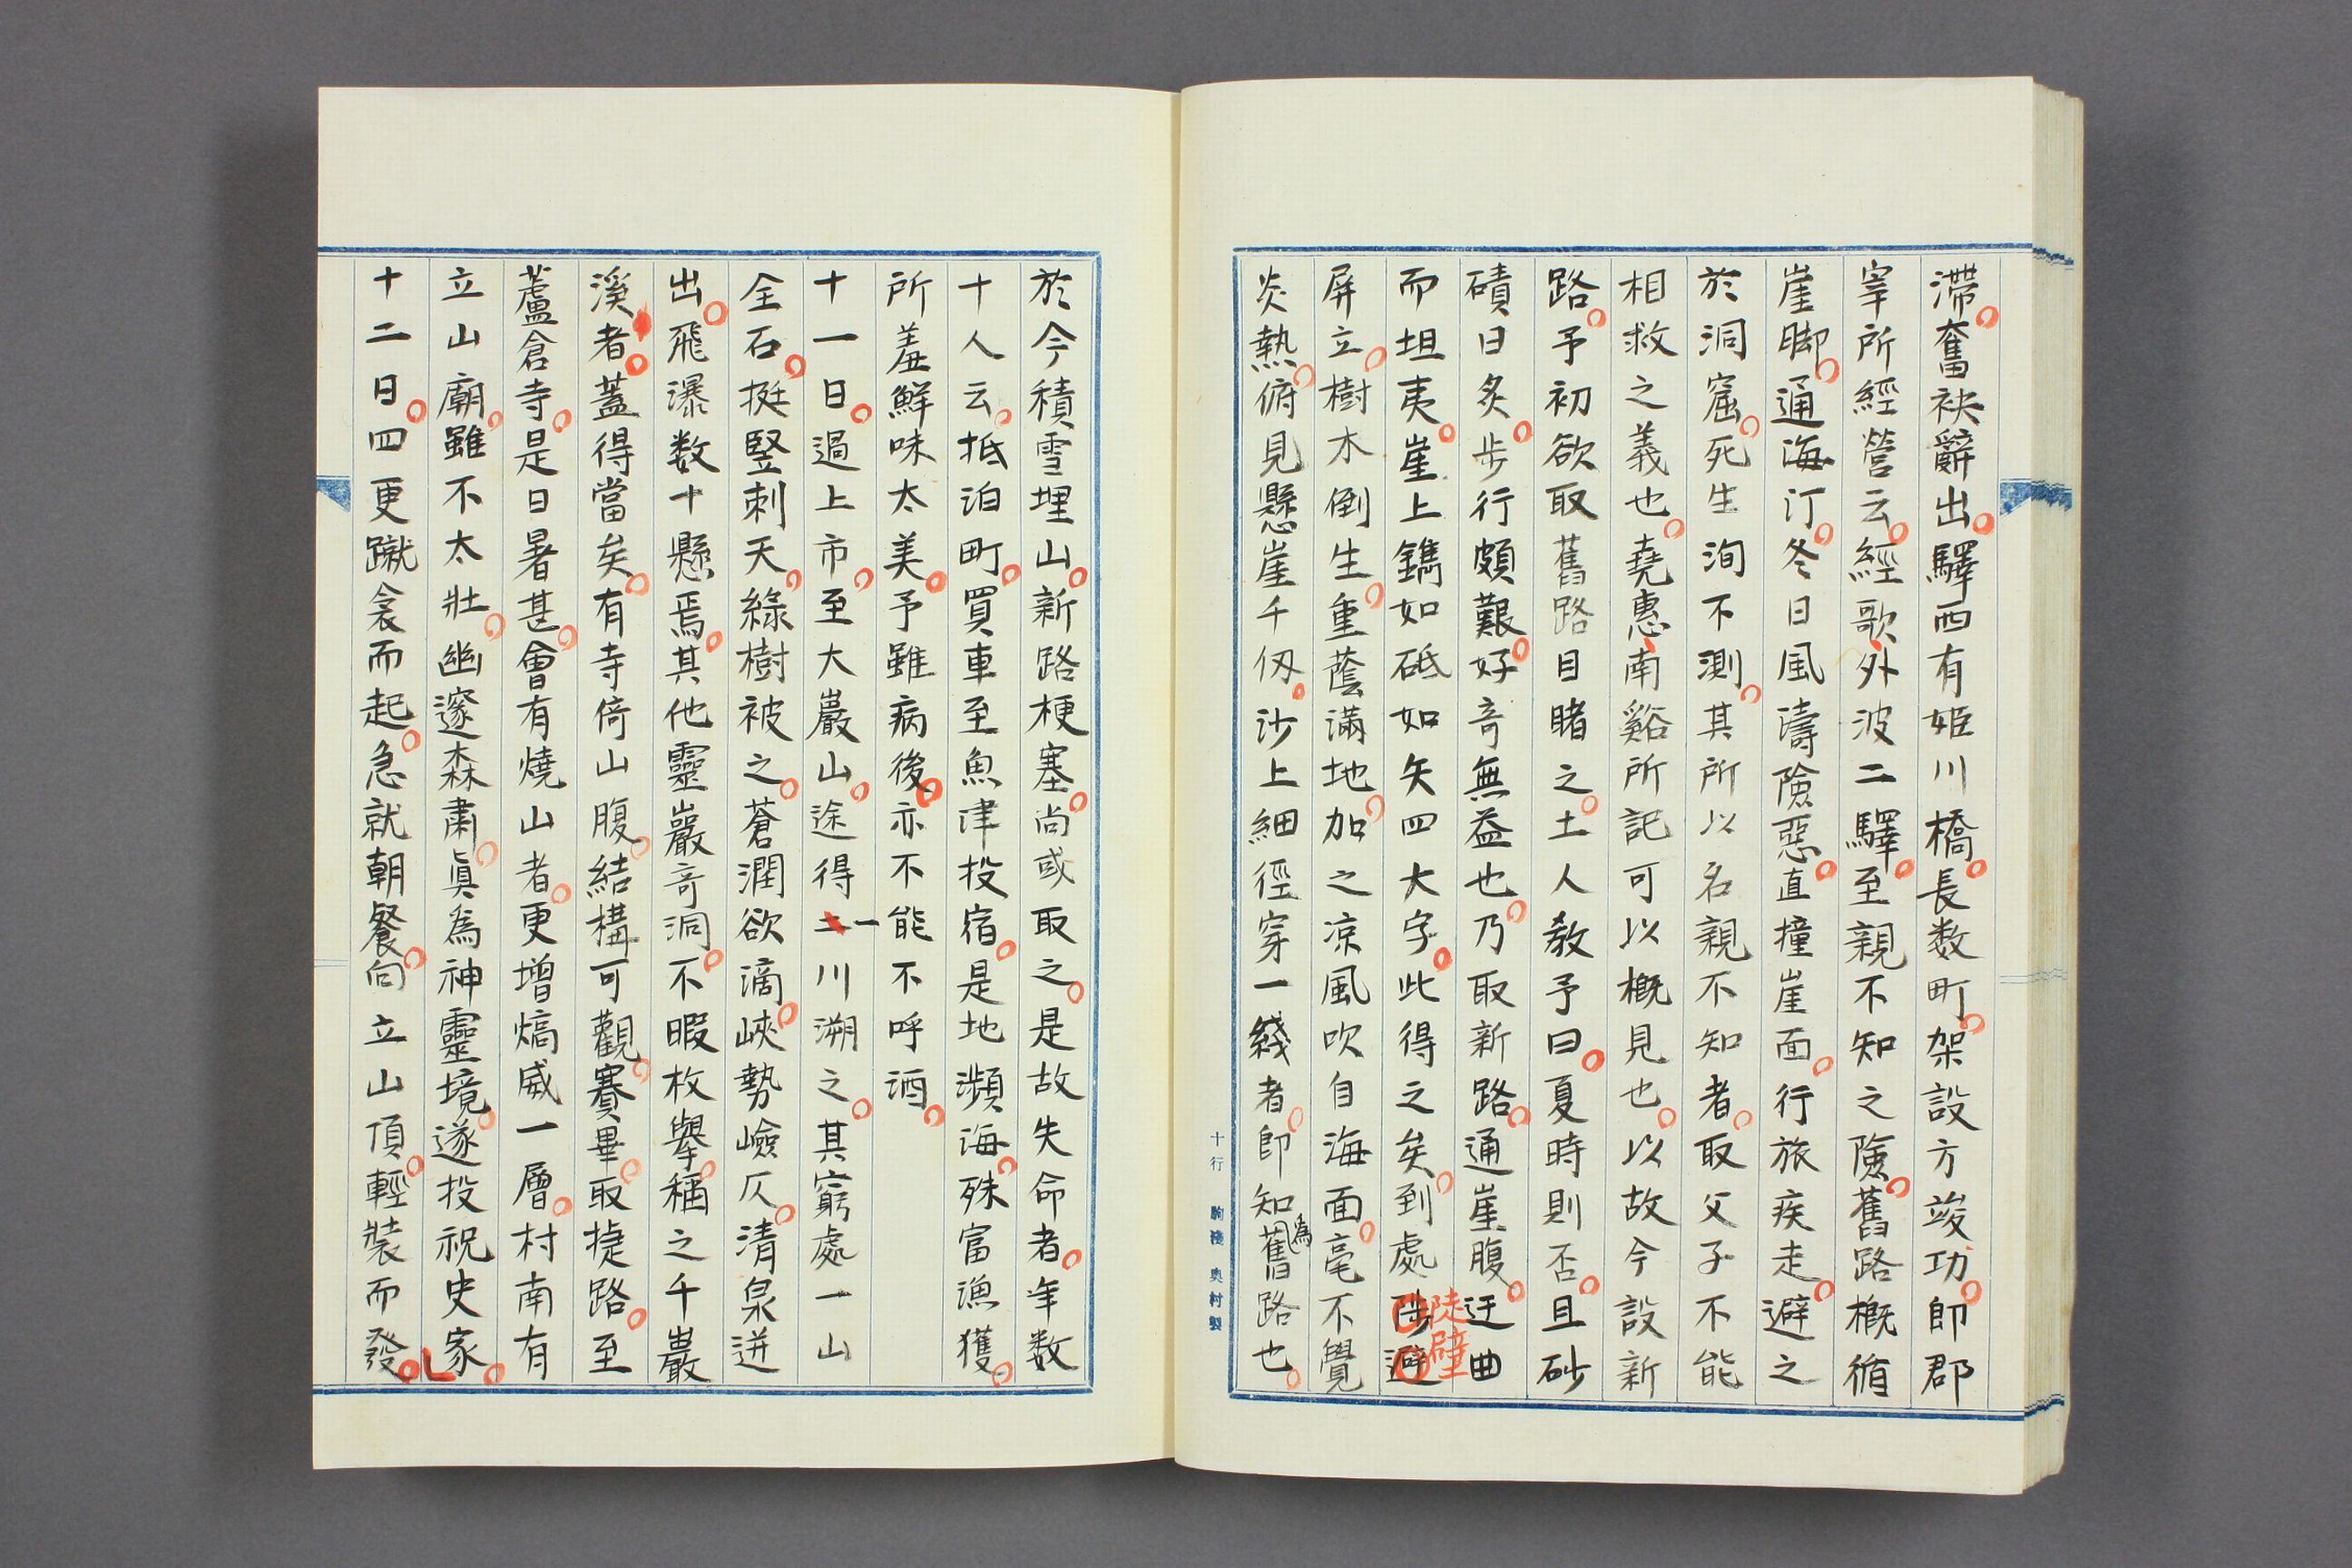 滯奮袂辭出驛西有姬川橋長数町架設方竣功即郡
宰所經營云經歌外波二驛至親不知之險舊路概循
崖脚通海汀冬日風濤險惡直撞崖面行旅疾走避之
於洞窟死生洵不測其所以名親不知者取父子不能
相救之義也堯惠南谿所記可以概見也以故今設新
路予初欲取舊路目睹之土人教予曰夏時則否且砂
磧日炙步行頗艱好奇無益也乃取新路通崖腹迂曲
而坦夷崖上鐫如砥如矢四大字此得之矣到處陡壁
屏立樹木倒生重蔭滿地加之凉風吹自海面毫不覺
炎熱俯見懸崖千仭沙上細徑穿一綫者即知為舊路也
十行 駒橋 奥村製
於今積雪埋山新路梗塞尚或取之是故失命者年数
十人云抵泊町買車至魚津投宿是地瀕海殊富漁獲
所羞鮮味太美予雖病後亦不能不呼酒
十一日過上市至大巖山途得一川溯之其窮處一山
全石挺竪刺天綠樹被之蒼潤欲滴峽勢嶮仄清泉迸
出飛瀑数十懸焉其他靈巖奇洞不暇枚擧稱之千巖
溪者蓋得當矣有寺倚山腹結構可觀賽畢取捷路至
蘆倉寺是日暑甚會有燒山者更增熇威一層村南有
立山廟雖不太壯幽邃森肅眞為神靈境遂投祝史家
十二日四更蹴衾而起急就朝餐向立山頂輕裝而發